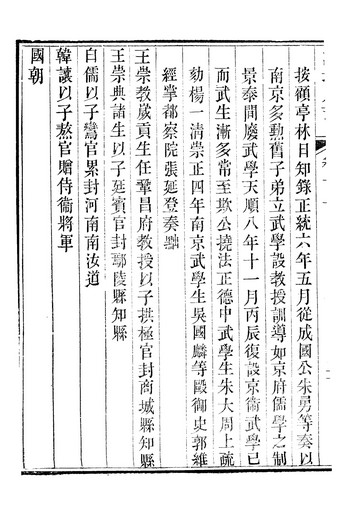 按顧亭林日知錄正統六年五月從成國公朱勇等奏以
南京多勳舊子弟立武學設教授訓導如京府儒學之制
景泰間廢武學天順八年十一月丙辰復設京衞武學已
而武生漸多常至欺公撓法正德中武學生朱大周上疏
劾楊一清崇正四年南京武學生吳國麟等毆御史郭維
經掌都察院張延登奏黜
王崇教歲貢生任鞏昌府教授以子拱極官封商城縣知縣
王崇典諸生以子延賓官封鄢陵縣知縣
白儒以子鸞官累封河南南汝道
韓讓以子熬官贈侍衞將軍
國朝